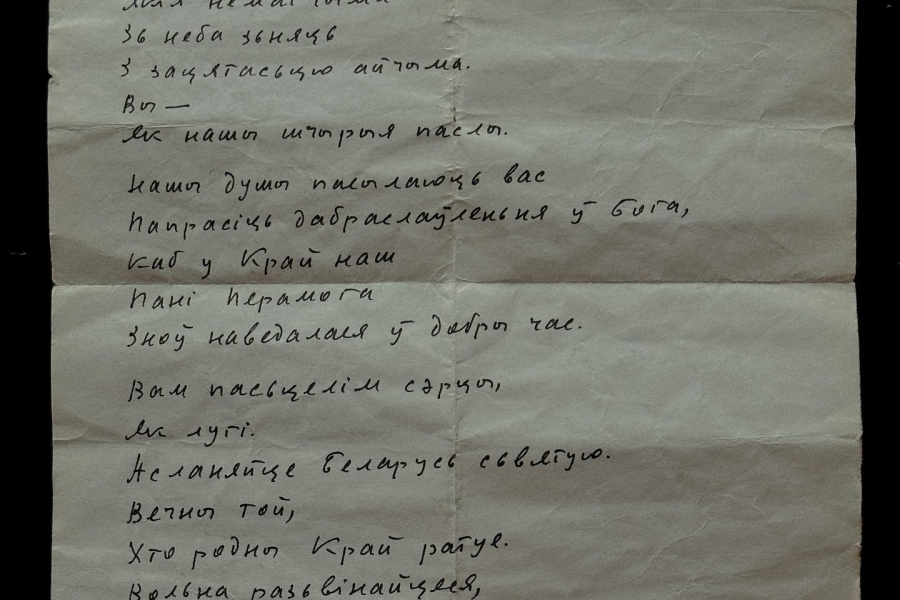 Зь неба зьняць
З зацятасьцю айчыма.
Вы —
Як нашы шчырыя паслы.
Нашы душы пасылаюць вас
Папрасіць дабраслаўленьня ў Бога,
Каб у Край наш
Пані Перамога
Зноў наведалася ў добры час.
Вам пасьцелім сэрцы,
Як лугі.
Асланяйце Беларусь сьвятую.
Вечны той,
Хто родны Край ратуе.
Вольна разьвінайцеся,